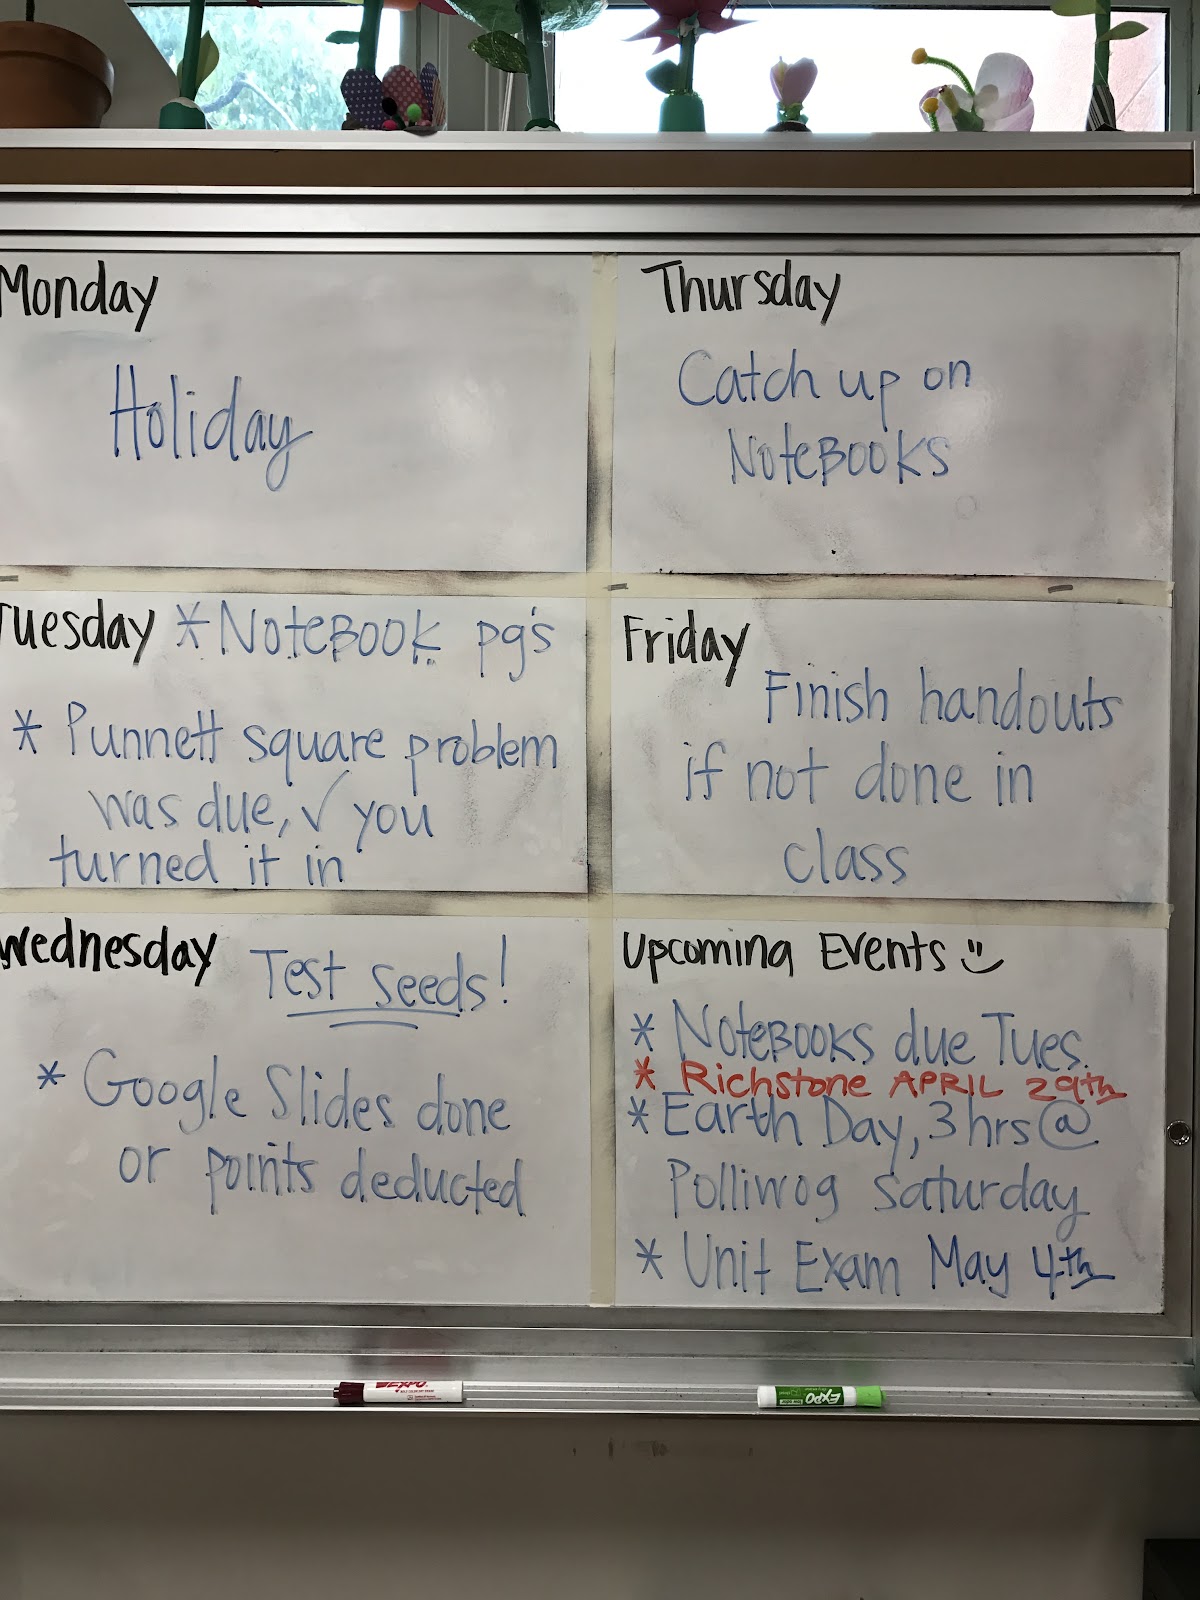 Monday
Holiday
Tuesday *NoteBook pg's
* Punnett square problem
was due, ✓ you
turned it in
Wednesday Test seeds!
* Google Slides done
or points deducted
Thursday
Catch up on
NoteBooks
Friday
Finish handouts
if not done in
class
Upcoming Events
* NoteBooks due Tues.
* Richstone APRIL 29th
* Earth Day, 3 hrs @
Polliwog saturday
* Unit Exam May 4th
EXPO
EXPO